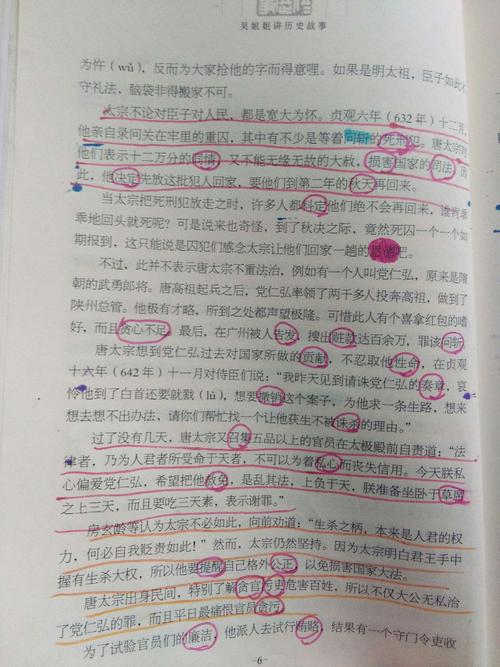 吴姐姐讲历史故事
为忤（wǔ），反而为大家抢他的字而得意哩。如果是明太祖，臣子如此不
守礼法、脑袋非得搬家不可。
太宗不论对臣子对人民，都是宽大为怀。贞观六年（632年）十二月，
他亲自录问关在牢里的重囚，其中有不少是等着问斩的死刑犯。唐太宗对
他们表示十二万分的同情，又不能无缘无故的大赦，损害国家的司法，因
此，他决定先放这批犯人回家，要他们到第二年的秋天再回来。
当太宗把死刑犯放走之时，许多人都料定他们绝不会再回来，谁肯乖
乖地回头就死呢？可是说来也奇怪，到了秋决之际，竟然死囚一个一个如
期报到，这只能说是囚犯们感念太宗让他们回家一趟的恩德吧。
不过，此并不表示唐太宗不重法治，例如有一个人叫党仁弘，原来是隋
朝的武勇郎将。唐高祖起兵之后，党仁弘率领了两千多人投奔高祖，做到了
陕州总管。他极有才略，所到之处都声望极隆。可惜此人有个喜拿红包的嗜
好，而且贪心不足，最后，在广州被人告发，搜出赃款达百余万，罪该问斩。
唐太宗想到党仁弘过去对国家所做的贡献，不忍取他性命，在贞观
十六年（642年）十一月对侍臣们说：“我昨天见到请诛党仁弘的奏章，哀
怜他到了白首还要就戮（lù），想要撤销这个案子，为他求一条生路，想来
想去想不出办法，请你们帮忙找一个让他获生不被诛杀的理由。”
过了没有几天，唐太宗又召集五品以上的官员在太极殿前自责道：“法
律者，乃为人君者所受命于天者，不可以为着私心而丧失信用。今天朕私
心偏爱党仁弘，希望把他赦免，是乱其法，上负于天，朕准备坐卧于草席
之上三天，而且要吃三天素，表示谢罪。”
房玄龄等认为太宗不必如此，向前劝道：“生杀之柄，本来是人君的权
力，何必自我贬责如此！”然而，太宗仍然坚持。因为太宗明白君王手中
握有生杀大权，所以他要提醒自己格外公正，以免损害国家大法。
唐太宗出身民间，特别了解贪官污吏危害百姓，所以不仅大公无私治
了党仁弘的罪，而且平日最痛恨官员贪污。
为了试验官员们的廉洁，他派人去试行贿赂，结果有一个守门令吏收
-6-